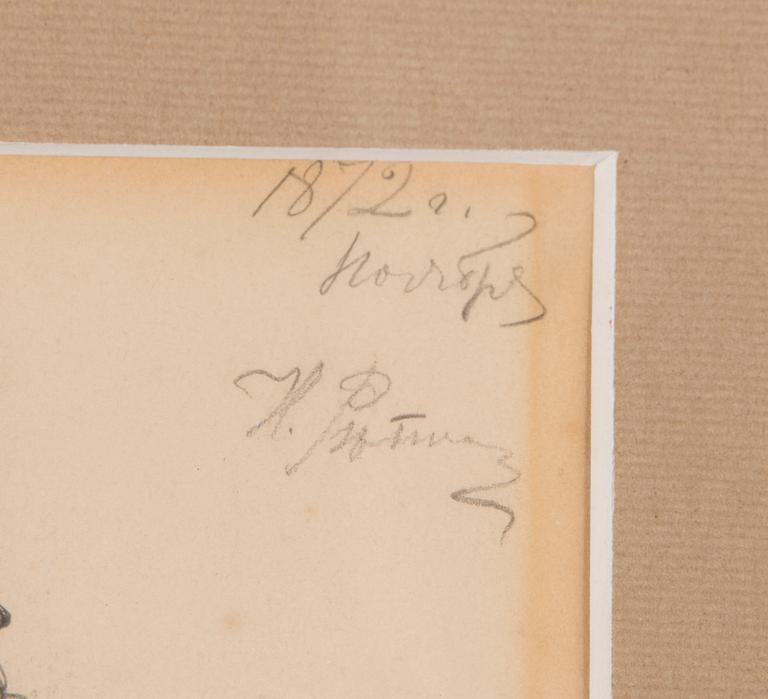 1872 г.
Ноября
И. Рѣпин